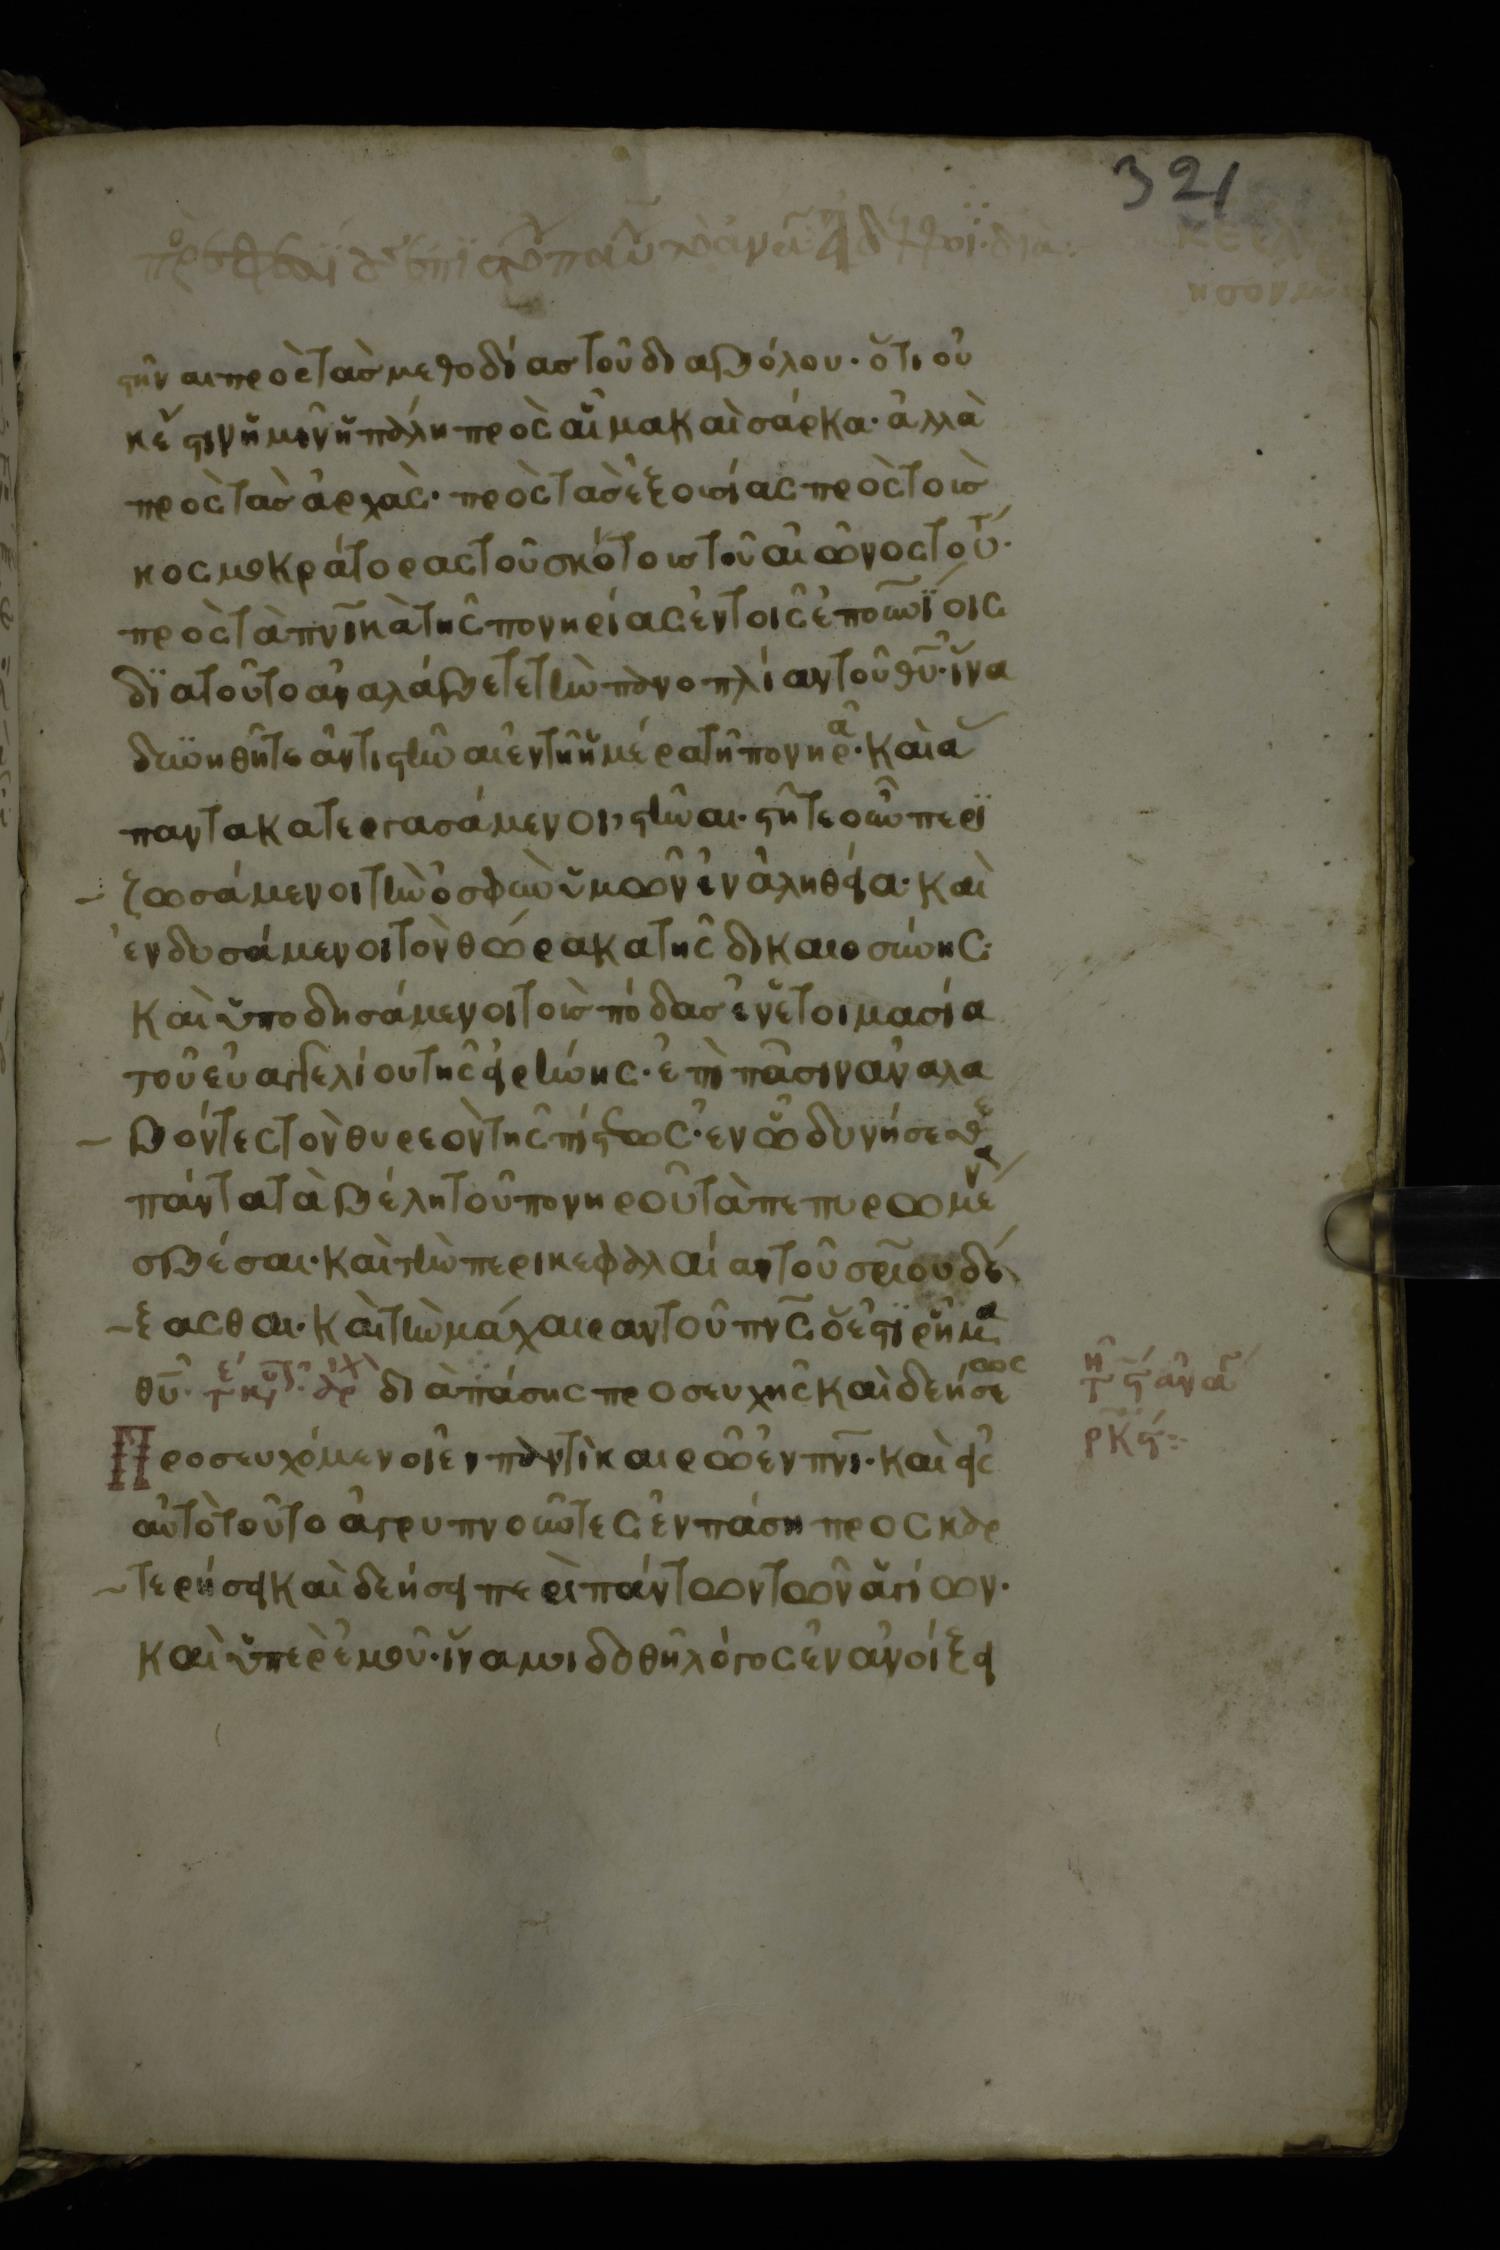 321
στῆναι πρὸς τὰς μεθοδίας τοῦ διαβόλου· ὅτι οὐ
κ ἔστιν ἡμῖν ἡ πάλη πρὸς αἷμα καὶ σάρκα· ἀλλὰ
πρὸς τὰς ἀρχὰς· πρὸς τὰς ἐξουσίας πρὸς τοὺς
κοσμοκράτορας τοῦ σκότους τοῦ αἰῶνος τού·
πρὸς τὰ πνικὰ τῆς πονηρίας ἐν τοῖς ἐπουνίοις
διὰ τοῦτο ἀναλάβετε τὴν πανοπλίαν τοῦ θυ· ἵνα
δυνηθῆτε ἀντιστῆναι ἐν τῇ ἡμέρα τῆ πονηρᾶ· καὶ ἅ
παντα κατεργασάμενοι, στῆναι· στῆτε οὖν περι
ζωσάμενοι τὴν ὀσφὺν ὑμῶν ἐν ἀληθεία· καὶ
ἐνδυσάμενοι τὸν θώρακα τῆς δικαιοσύνης·
καὶ ὑποδησάμενοι τοὺς πόδας ἐν ἑτοιμασία
τοῦ εὐαγγελίου τῆς εἰρήνης· ἐπὶ πᾶσιν ἀναλα
βόντες τὸν θυρεὸν τῆς πίστεως· ἐν ᾧ δυνήσεσθε
πάντα τὰ βέλη τοῦ πονηροῦ τὰ πεπυρωμένα
σβέσαι· καὶ τὴν περικεφαλαίαν τοῦ σριου δέ
ξασθαι· καὶ τὴν μάχαιραν τοῦ πνς ὅ ἐστι ῥῆμα
θυ· διὰ πάσης προσευχῆς καὶ δεήσεως
Προσευχόμενοι ἐν παντὶ καιρῶ ἐν πνι· καὶ εἰς
αὐτὸ τοῦτο ἀγρυπνοῦντες ἐν πάση προσκαρ
τερήσει καὶ δεήσει περὶ πάντων τῶν ἁγίων·
καὶ ὑπὲρ ἐμοῦ· ἵνα μοι δοθῆ λόγος ἐν ἀνοίξει